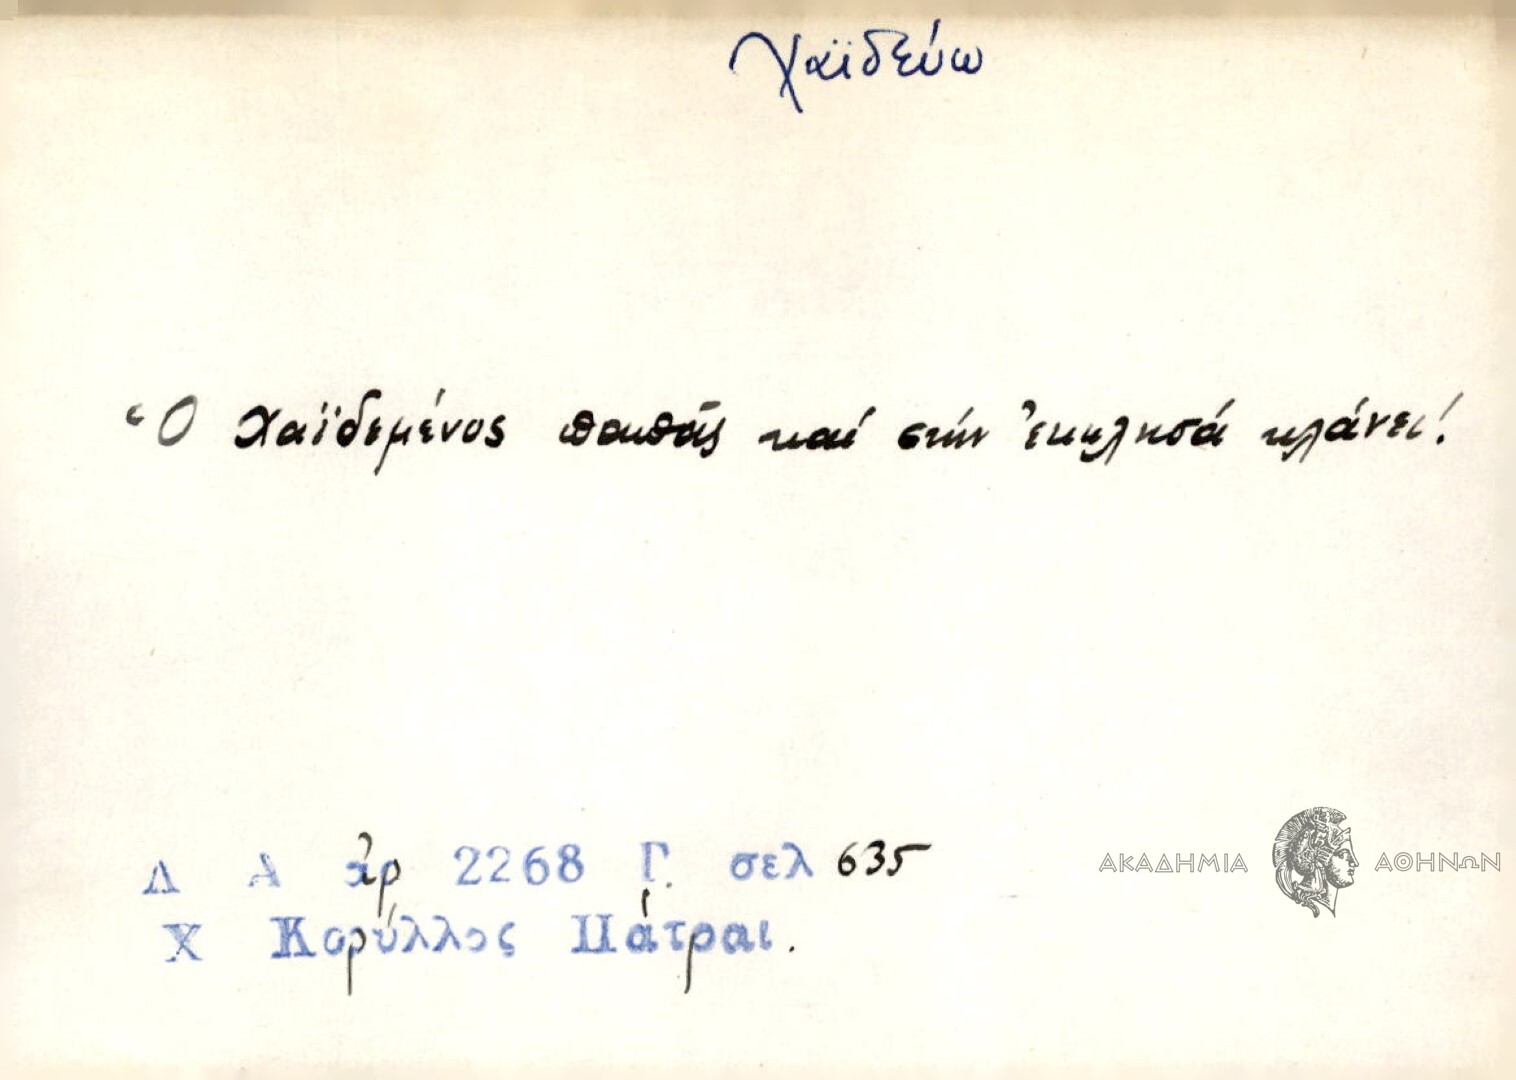 Χαϊδεύω
Ὁ χαϊδεμένος παπᾶς καί στήν ἐκκλησά κλάνει!
Λ Α ἀρ 2268 Γ. σελ 635
Χ Κορύλλος Πάτραι.
ΑΚΑΔΗΜΙΑ ΑΘΗΝΩΝ